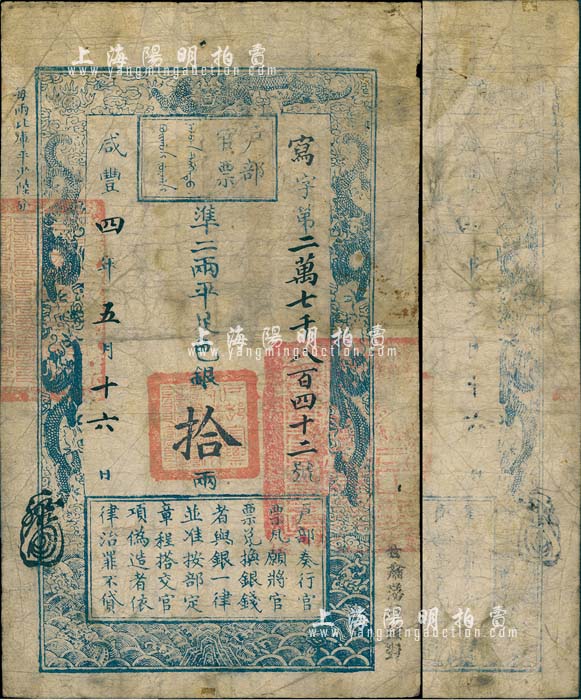 上海陽明拍賣
www.yangmingauction.com
戶部
官票
寫字第二萬七千八百四十二號
準二兩平足色銀拾兩
咸豐四年五月十六日
每兩比庫平少陸分
戶部奏行官
票凡願將官
票兌換銀錢
者與銀一律
並准按部定
章程搭交官
項偽造者依
律治罪不貸
上海陽明拍賣
www.yangmingauction.com
上海陽明拍賣
www.yangmingauction.com